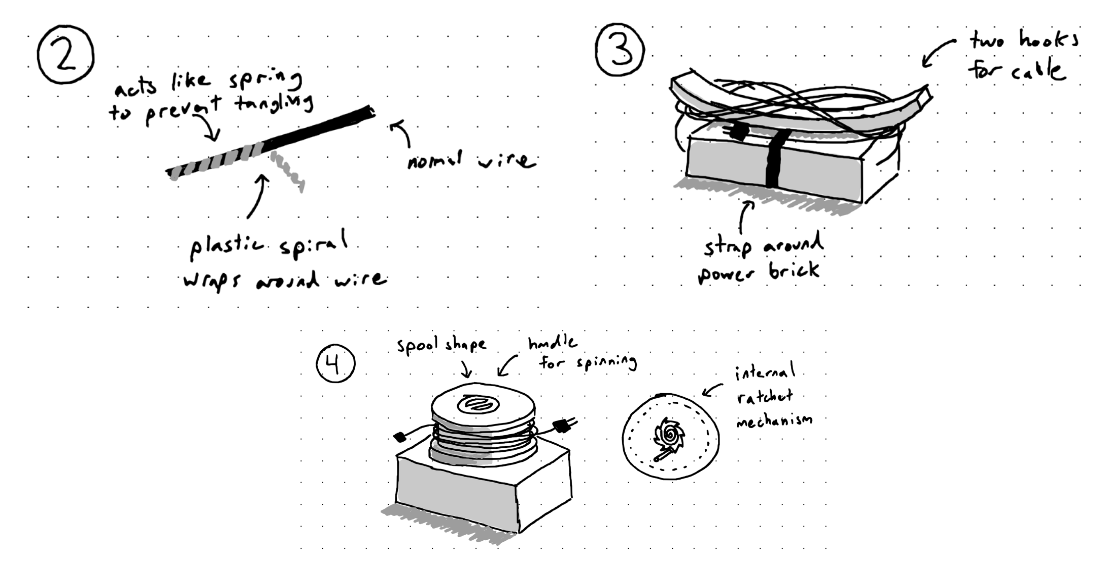 2
acts like spring
to prevent tangling
normal wire
plastic spiral
wraps around wire
3
two hooks
for cable
strap around
power brick
4
spool shape
handle
for spinning
internal
ratchet
mechanism